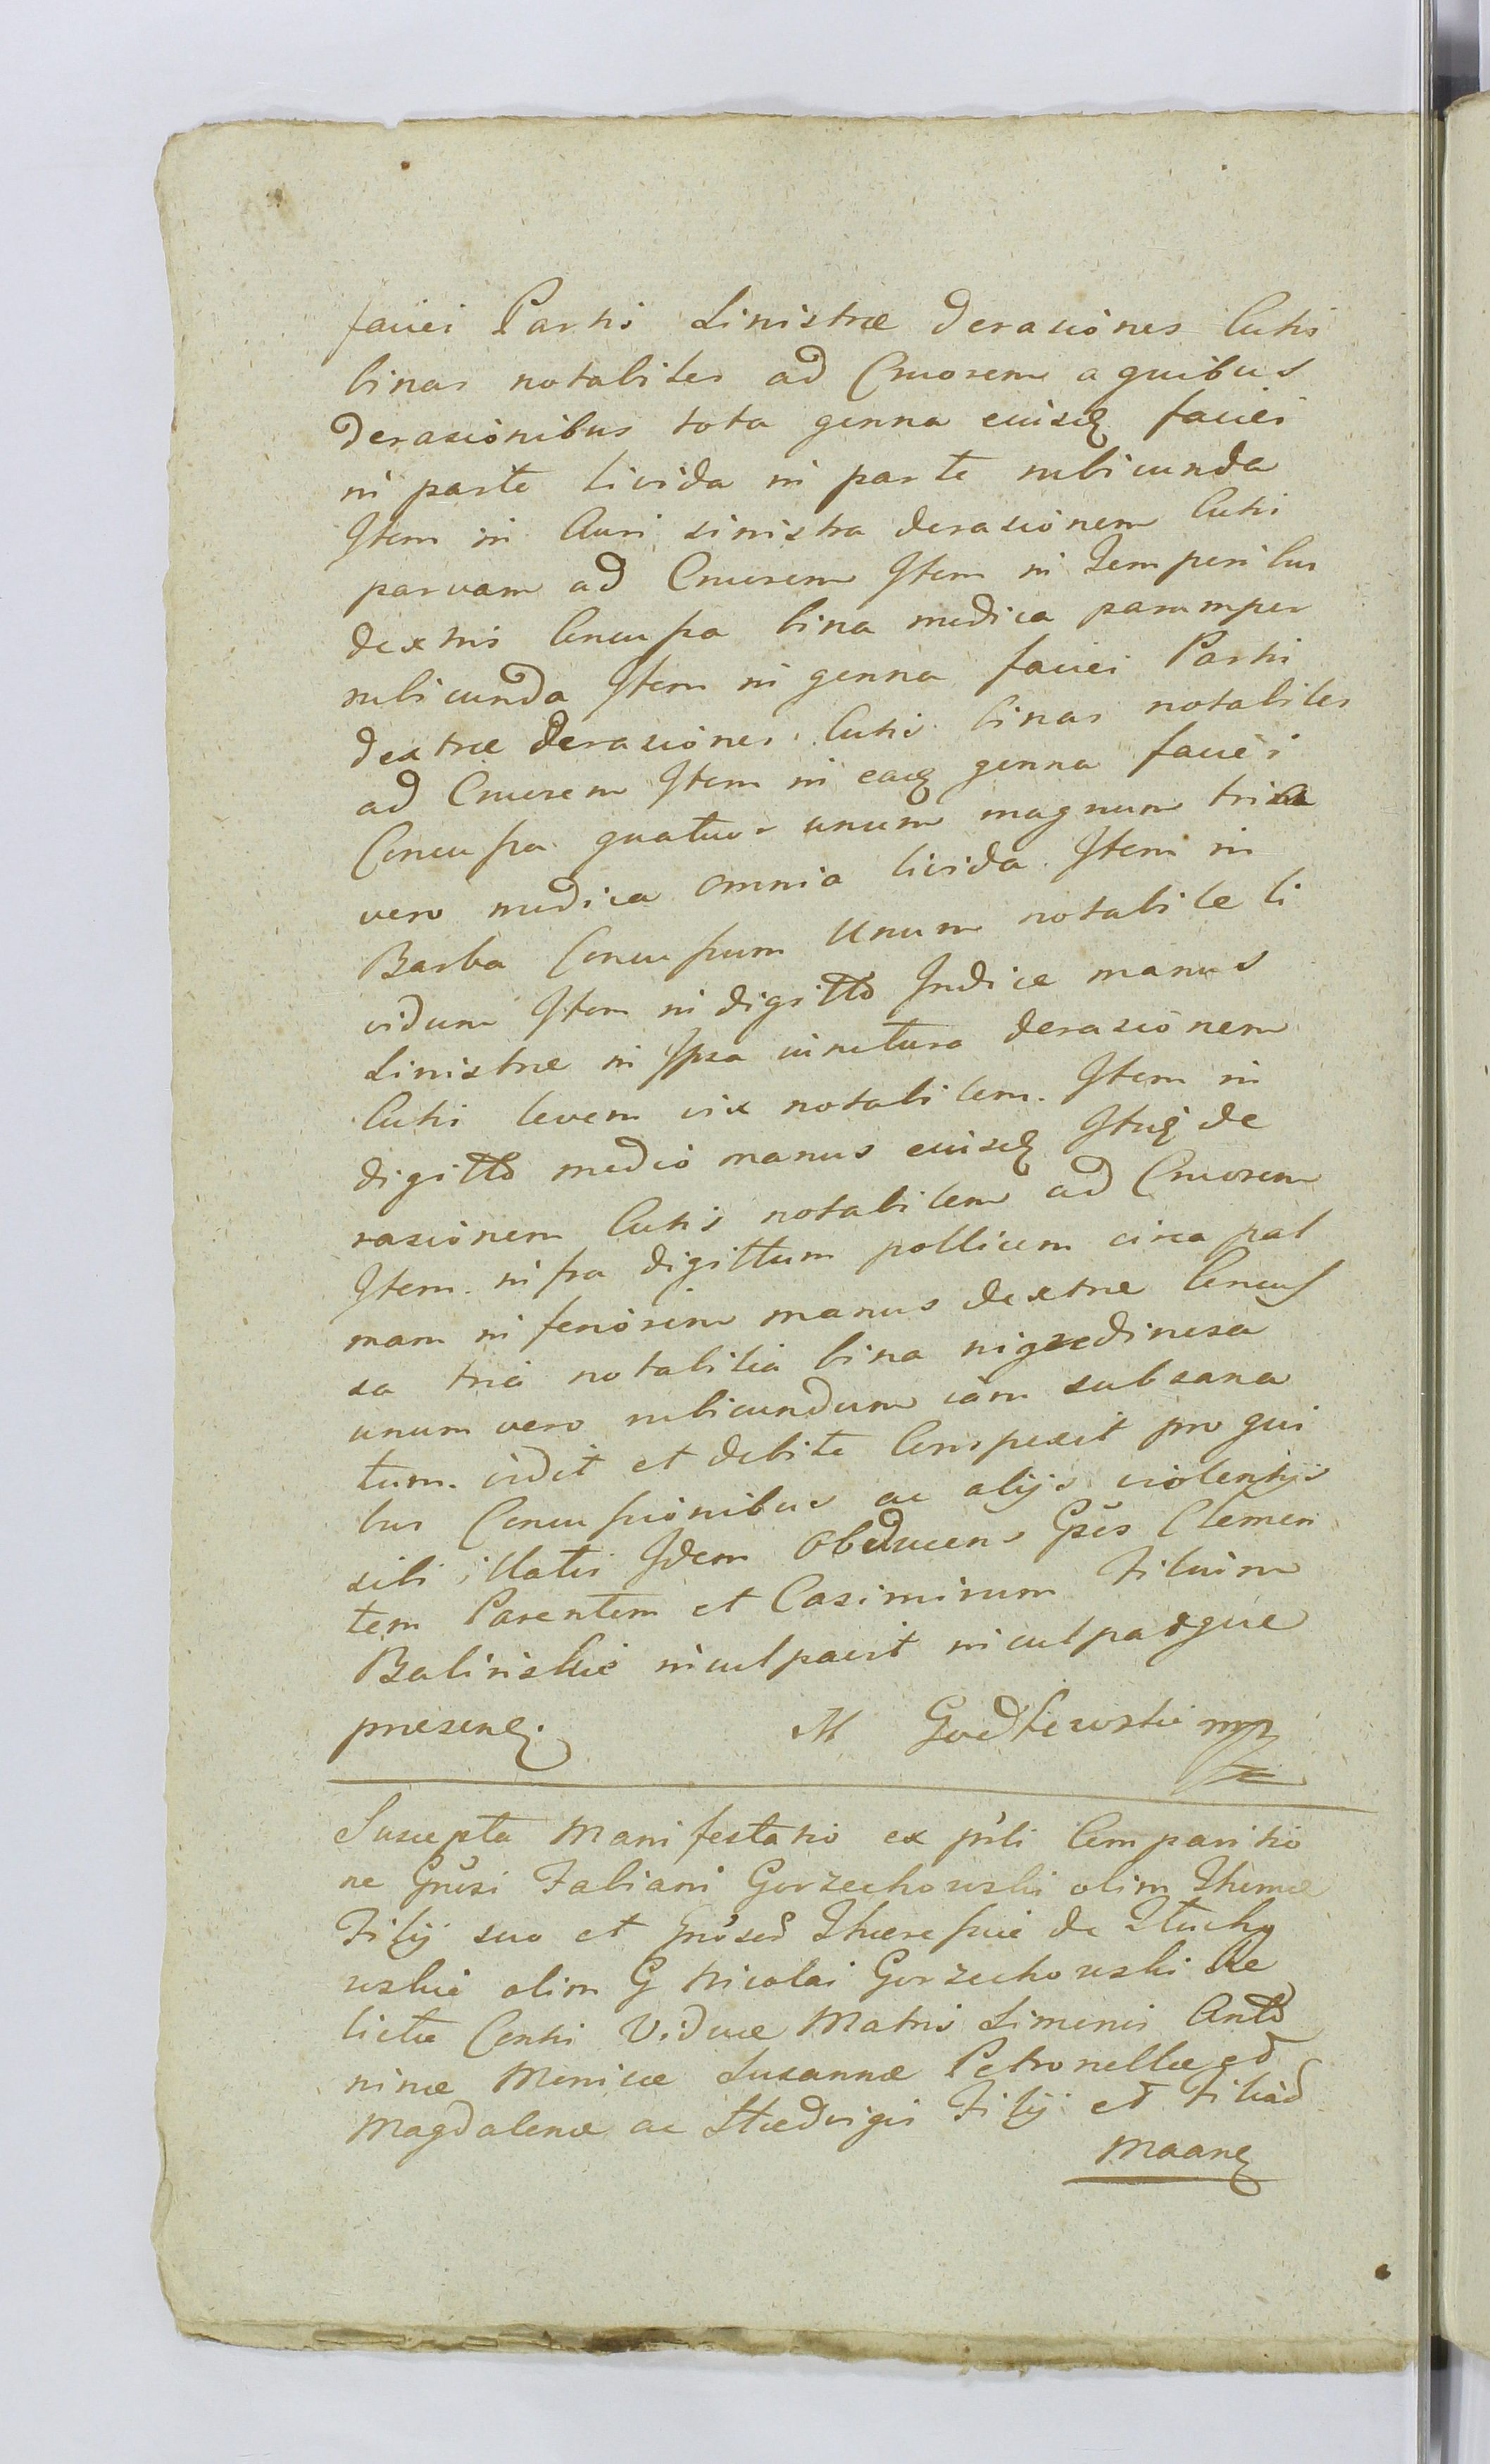 faciei Partis Sinistræ derasiones Cutis
binas notabiles ad Cruorem a quibus
derasionibus tota genna eiusdꝫ faciei
in parte livida in parte rubicunda
Item in Auri sinistra derasionem Cutis
parvam ad Cruorem Item in Temporibus
dextris Concussa bina modica parumper
rubicunda Item in genna faciei Partis
dextræ derasiones Cutis binas notabiles
ad Cruorem Item in eadꝫ genna faciei
Concussa quatuor unum magnum tria
vero modica omnia livida. Item in
Barba Concussum Unum notabile li
vidum Item in digitto Indice manus
Sinistræ in Ipsa iunctura derasionem
Cutis levem vix notabilem. Item in
digitto medio manus eiusdꝫ Itidꝫ de
rasionem Cutis notabilem ad Cruorem
Item infra digittum pollicem circa pal
mam inferiorem manus dextræ Concus
sa tria notabilia bina nigredinosa
unum vero rubicundum iam subsana
tum. vidit et debite Conspexit pro qui
bus Concussionibus ac alijs violentijs
sibi illatis Idem Obducens Gsos Clemen
tem Parentem et Casimirum Filium
Balinskie inculpavit inculpatque
præsenꝫ. M Godlewski mp
Suscepta Manifestatio ex prsli Compariti̇o
ne Gnosi Fabiani Gorzechowski olim Thomæ
Filij suo et Gnosæ Theressiæ de
wskie olim G Nicolai Gorzechowski Re
lictæ Conthi Viduæ Matris Simonis Anto
ninæ Monicæ Susannæ Petronellæ et
Magdalenæ ac Hædvigis Filij et Filiar
Maanꝫ